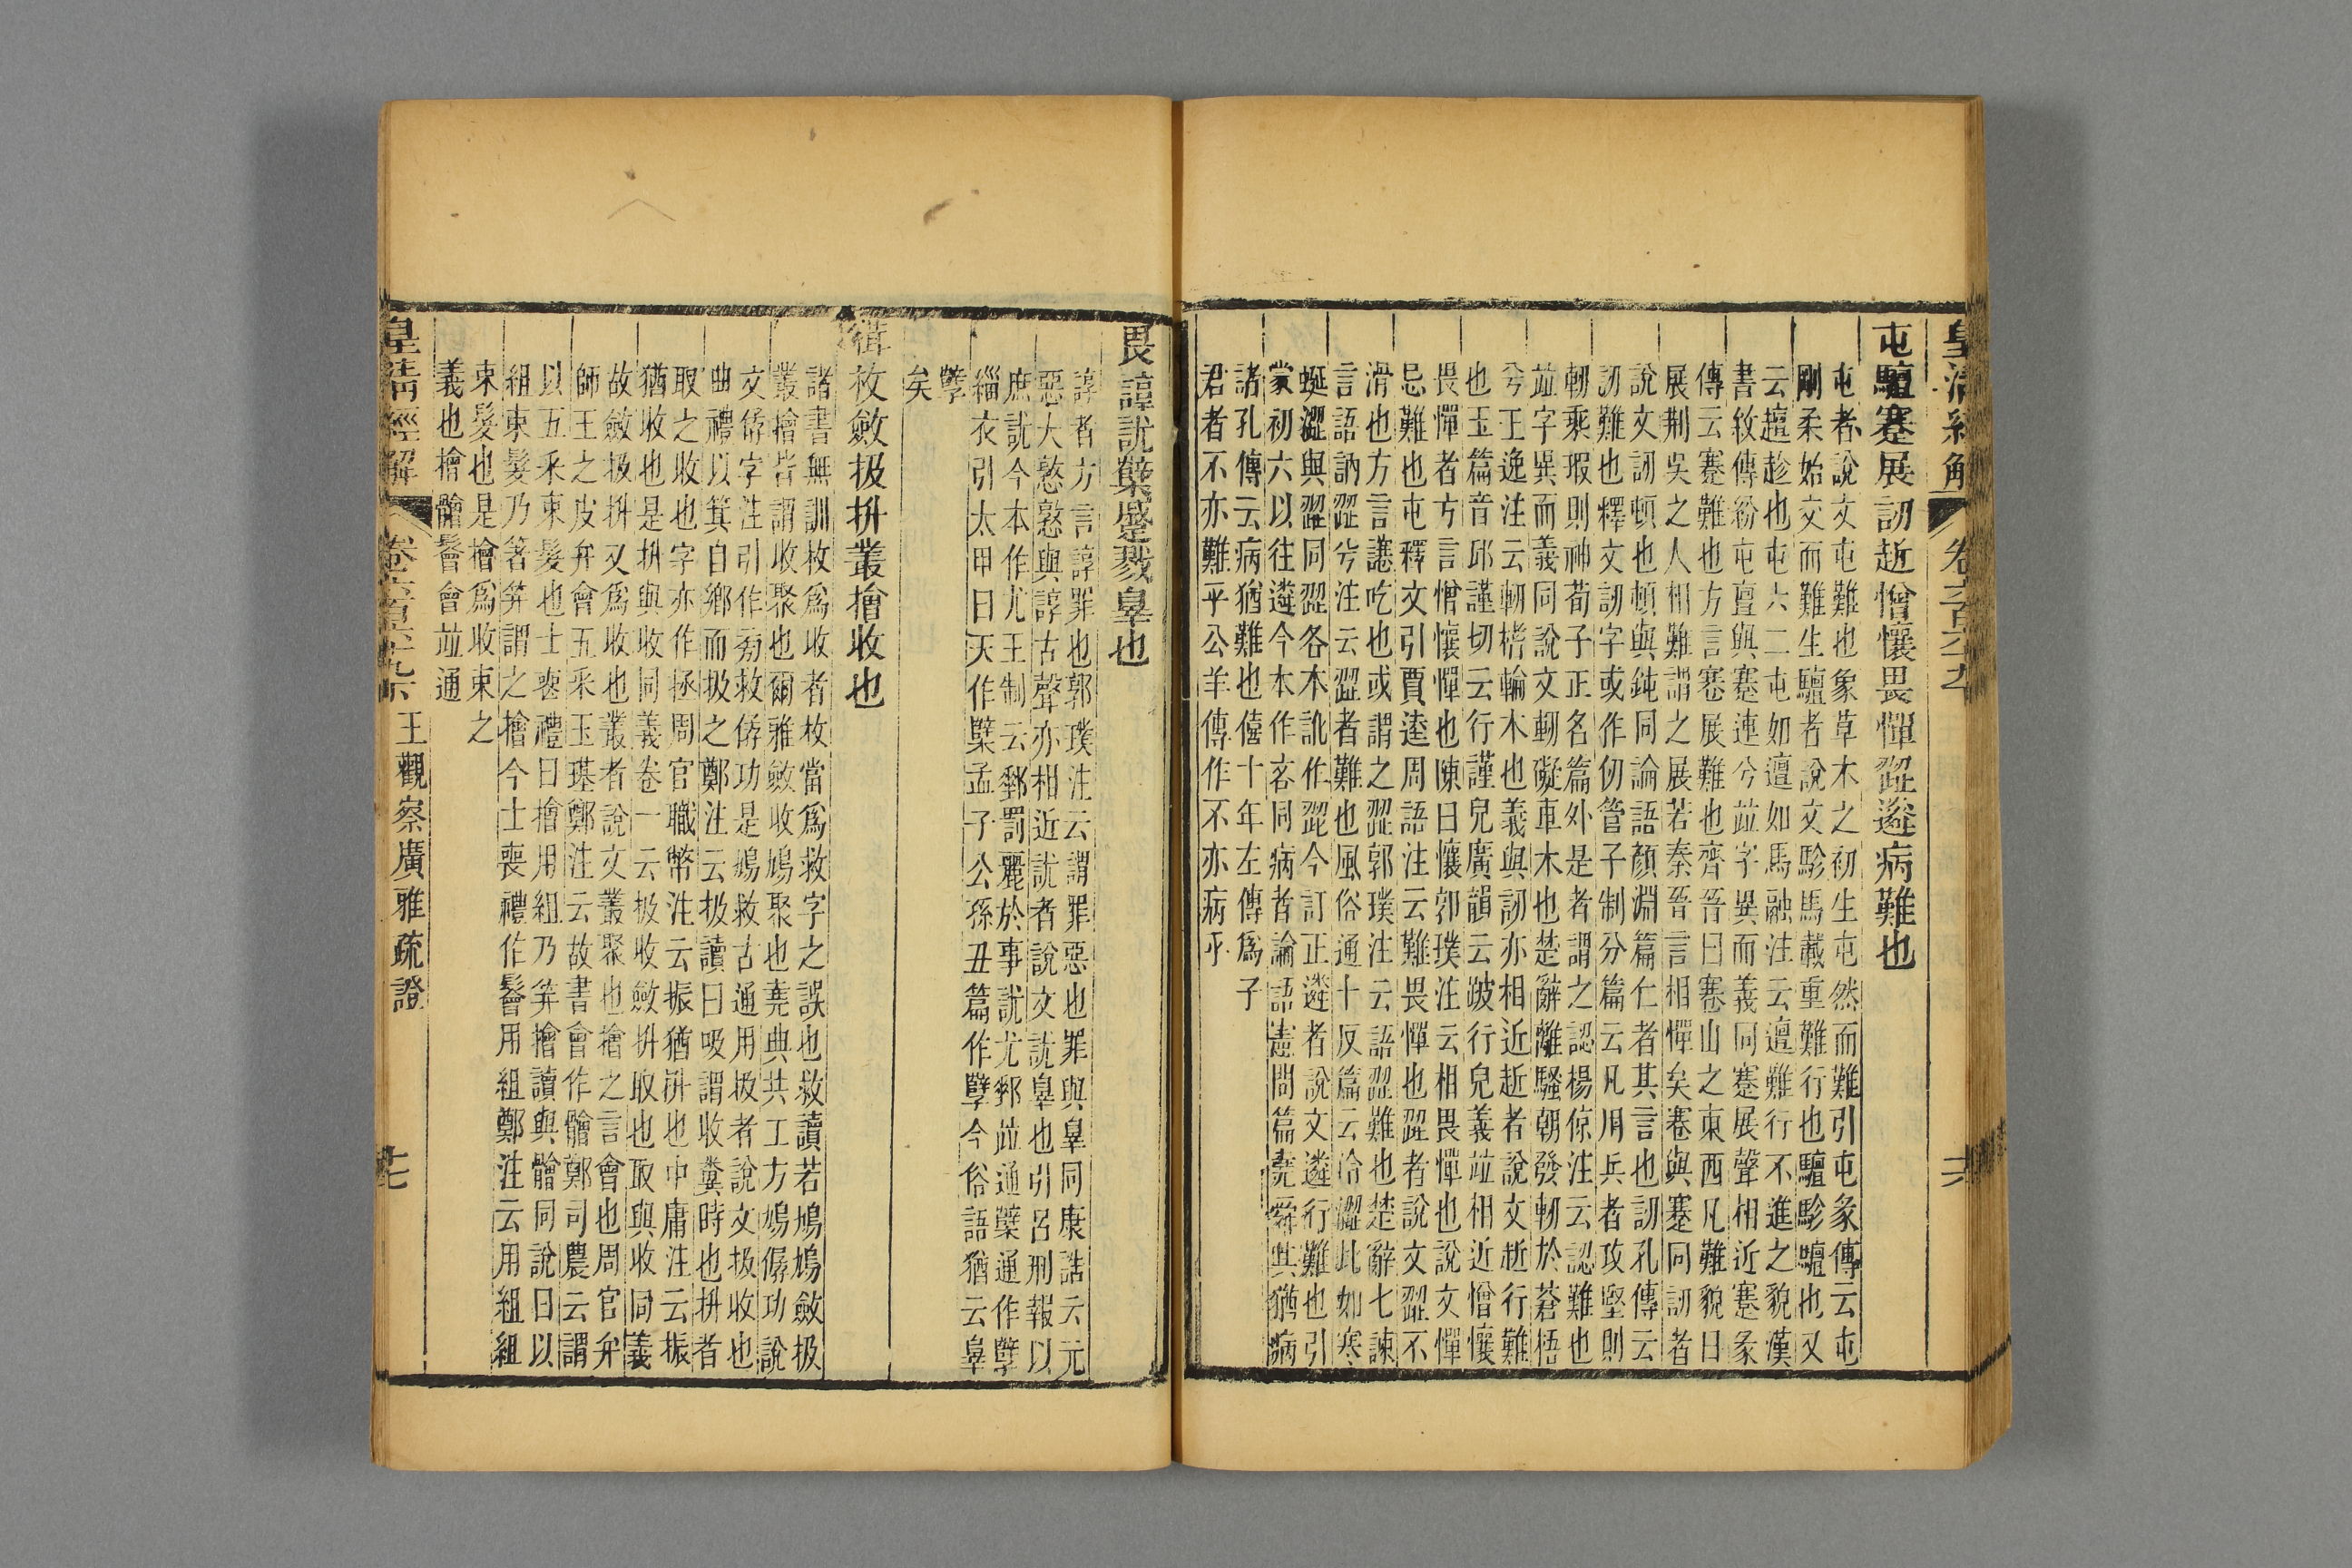 皇清經解 卷六百六十九
屯驙蹇展訒逝憎懹畏憚歰遴病難也
屯者說文屯難也象草木之初生屯然而難引屯彖傳云屯
剛柔始交而難生驙者說文駗馬載重難行也驙駗驙也又
云趲趁也屯六二屯如邅如馬融注云邅難行不進之貌漢
書敘傳紛屯亶與蹇連兮竝字異而義同蹇展聲相近蹇彖
傳云蹇難也方言蹇展難也齊晉曰蹇山之東西凡難貌曰
展荆吳之人相難謂之展若秦晉言相憚矣蹇與蹇同訒者
說文訒頓也頓與鈍同論語顏淵篇仁者其言也訒孔傳云
訒難也釋文訒字或作仞管子制分篇云凡用兵者攻堅則
軔乘瑕則神荀子正名篇外是者謂之認楊倞注云認難也
竝字異而義同說文軔礙車木也楚辭離騷朝發軔於蒼梧
兮王逸注云軔榰輪木也義與訒亦相近逝者說文逝行難
也玉篇音邱謹切云行謹皃廣韻云跛行皃義竝相近憎懹
畏憚者方言憎懹憚也陳曰懹郭璞注云相畏憚也說文憚
忌難也屯釋文引賈逵周語注云難畏憚也歰者說文歰不
滑也方言讓吃也或謂之歰郭璞注云語歰難也楚辭七諫
言語訥歰兮注云歰者難也風俗通十反篇云冾澀此如寒
蜒澀與歰同歰各本訛作歮今訂正遴者說文遴行難也引
蒙初六以往遴今本作吝同病者論語憲問篇堯舜其猶病
諸孔傳云病猶難也僖十年左傳爲子
君者不亦難乎公羊傳作不亦病乎
六
畏諄訧櫱蹙戮辠也
諄者方言諄罪也郭璞注云謂罪惡也罪與辠同康誥云元
惡大憝憝與諄古聲亦相近訧者說文訧辠也引呂刑報以
庶訧今本作尤王制云郵罰麗於事訧尤郵竝通櫱通作孼
緇衣引太甲曰天作櫱孟子公孫丑篇作孼今俗語猶云辠
孼
矣
緝救斂扱拼叢撿收也
諸書無訓枚爲收者枚當爲救字之誤也救讀若鳩鳩斂扱
叢撿皆謂收聚也爾雅斂收鳩聚也堯典共工方鳩僝功說
文㑃字注引作旁救㑃功是鳩救古通用扱者說文扱收也
曲禮以箕自鄉而扱之鄭注云扱讀曰吸謂收糞時也拼者
取之收也字亦作拯周官職幣注云振猶拼也中庸注云振
猶收也是拼與收同義卷一云扱收斂拼取也取與收同義
故斂扱拼又爲收也叢者說文叢聚也撿之言會也周官弁
師王之皮弁會五采玉璂鄭注云故書會作䯤鄭司農云謂
以五采束髮也士喪禮曰檜用組乃笄檜讀與䯤同說曰以
組束髮乃著笄謂之檜今士喪禮作鬠用組鄭注云用組組
束髮也是檜爲收束之
義也檜䯤鬠會竝通
皇清經解 卷六百六十九下 王觀察廣雅疏證 七